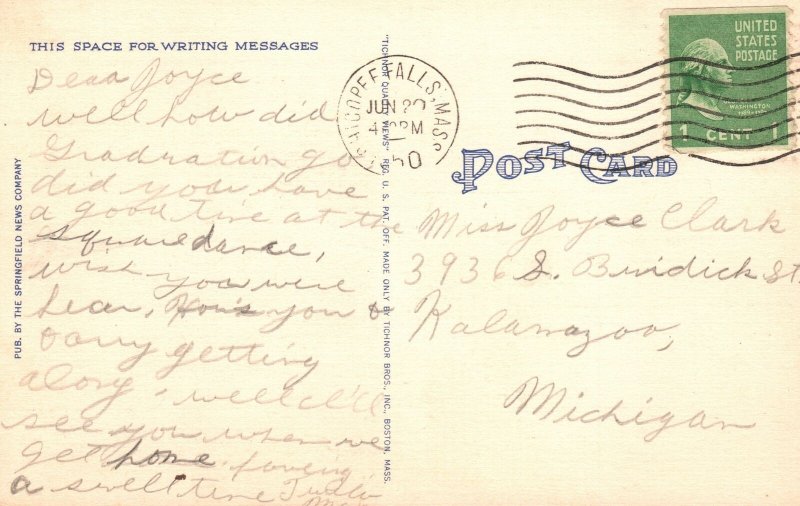 THIS SPACE FOR WRITING MESSAGES
Dear Joyce
well how did
Gradration go
did you have
a good tire at the
square dance,
wish you were
hear, How's you &
garry getting
along. well I'll
see you when we
get home. haveing
a swell time
PUB. BY THE SPRINGFIELD NEWS COMPANY
"TICHNOR QUALITY VIEWS" REG. U. S. PAT. OFF. MADE ONLY BY TICHNOR BROS., INC., BOSTON, MASS.
CHICOPEE FALLS, MASS.
JUN 20
PM
50
UNITED
STATES
POSTAGE
WASHINGTON
1 CENT 1
POST CARD
Miss Joyce Clark
3936 S. Burdick St.
Kalamazoo,
Michigan